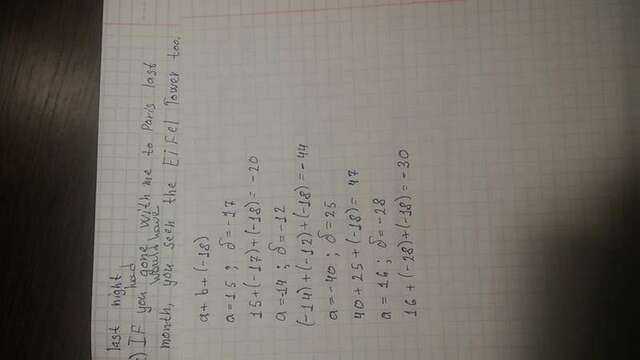 last night
had
2) If you gone with me to Paris last
would have
month, you seen the Eifel Tower too.
a + b + (-18)
a = 15 ; б = -17
15 + (-17) + (-18) = -20
a = -14 ; б = -12
(-14) + (-12) + (-18) = -44
a = -40 ; б = 25
40 + 25 + (-18) = 47
a = 16 ; б = -28
16 + (-28) + (-18) = -30